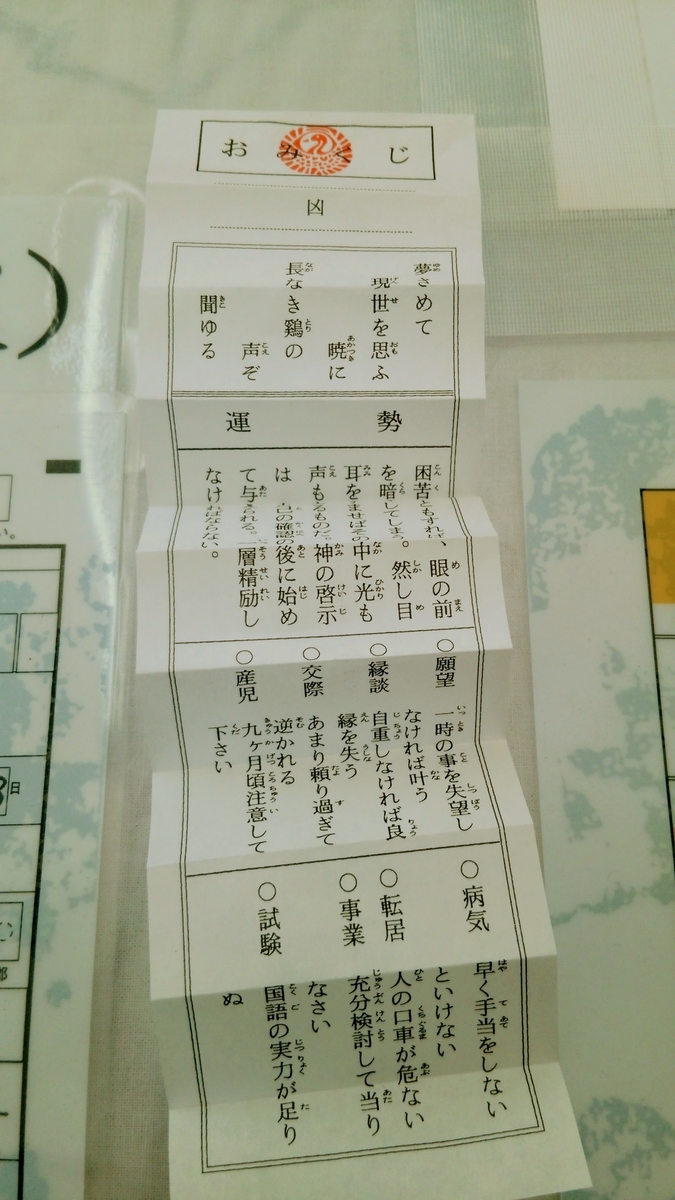 おみくじ
凶
夢さめて
現世を思ふ
暁に
長なき鶏の
声ぞ
聞ゆる
運勢
困苦ともすれば、眼の前
を暗してしまう。然し目
耳をませばその中に光も
声もるものだ。神の啓示
は己の確認の後に始め
て与られる。一層精励し
なければならない。
○願望
一時の事を失望し
なければ叶う
○縁談
自重しなければ良
縁を失う
○交際
あまり頼り過ぎて
逆かれる
○産児
九ヶ月頃注意して
下さい
○病気
早く手当をしない
といけない
○転居
人の口車が危ない
○事業
充分検討して当り
なさい
○試験
国語の実力が足り
ぬ
日